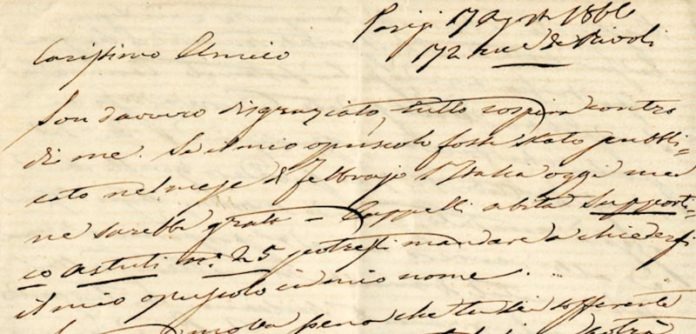 Parigi 17 Agosto 1866
172 rue de Rivoli
Carissimo Amico
Son davvero disgraziato, tutto cospira contro
di me. Se il mio opuscolo fosse stato pubbli-
cato nel mese di febbrajo l'Italia oggi me
ne sarebbe grata – Cappelli abita
n.° 25 potresti mandare a chiedergli
il mio opuscolo in mio nome.
pena che tu sia sofferente